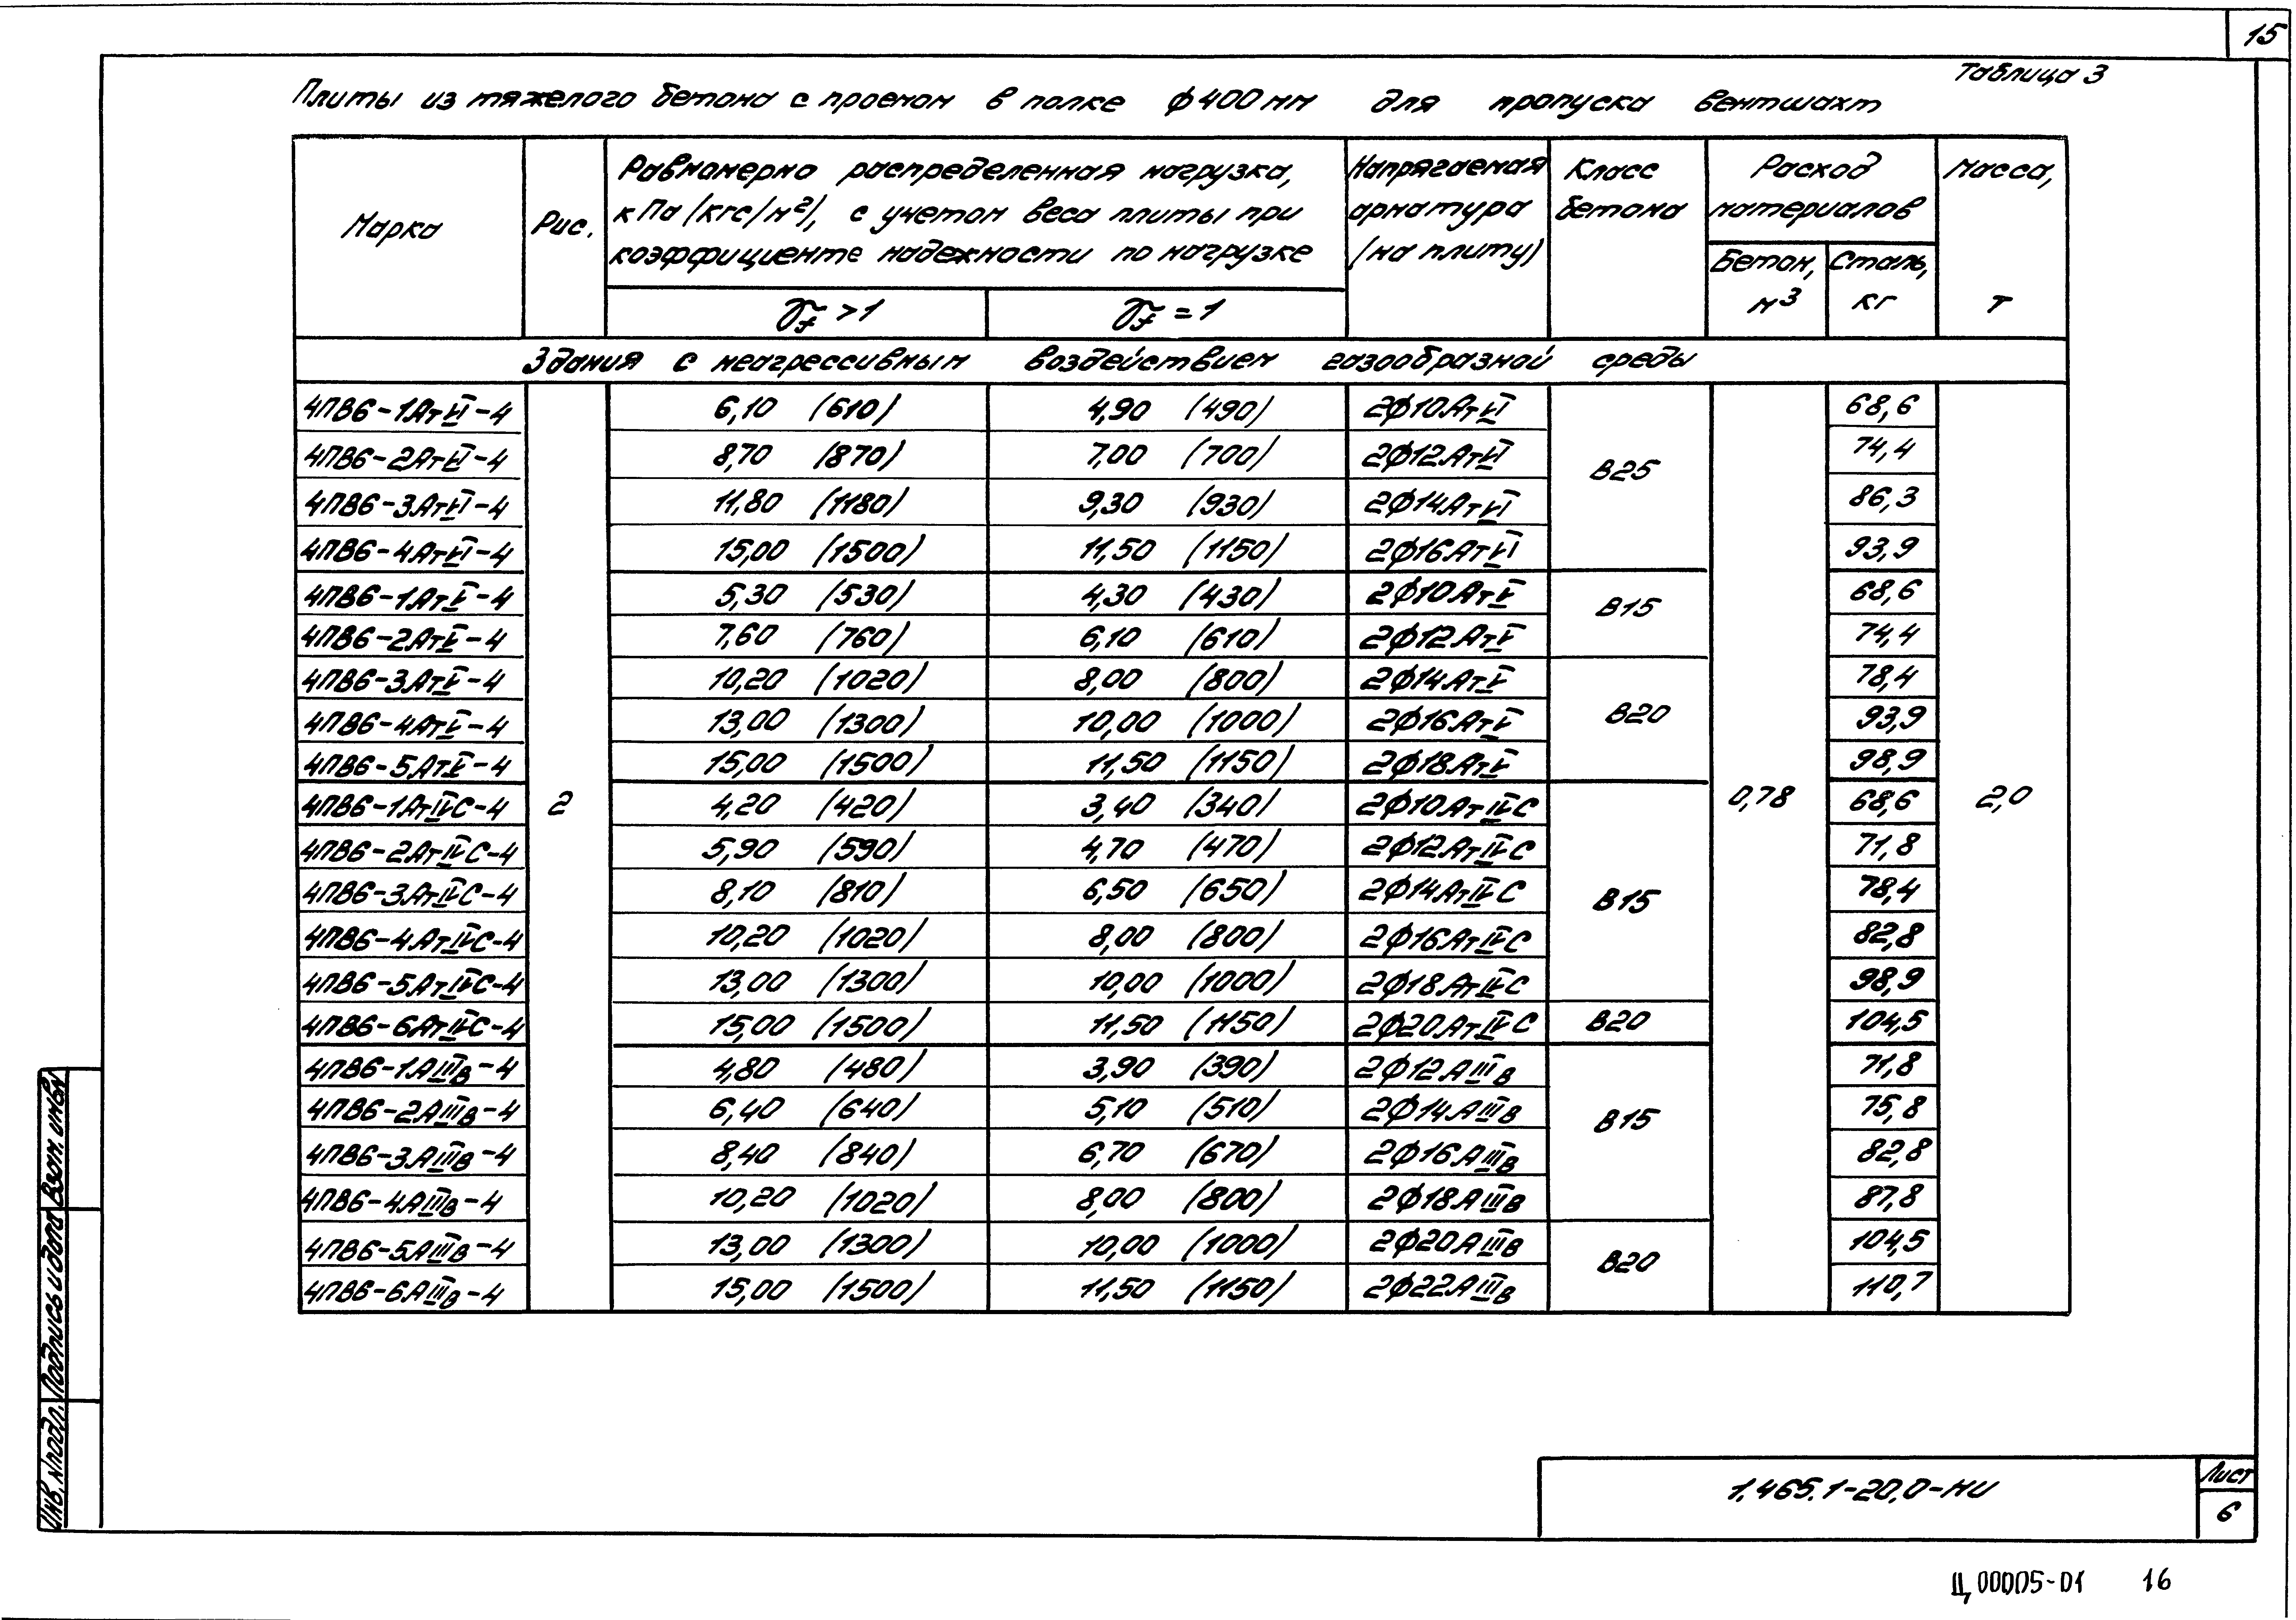 15
Таблица 3
Плиты из тяжелого бетона с проемом в полке ϕ400 мм для пропуска вентшахт
Марка
Рис.
Равномерно распределенная нагрузка,
кПа (кгс/м²), с учетом веса плиты при
коэффициенте надежности по нагрузке
γf > 1
γf = 1
Напрягаемая
арматура
(на плиту)
Класс
бетона
Расход
материалов
Бетон,
м³
Сталь,
кг
Масса,
т
Здания с неагрессивным воздействием газообразной среды
4ПВ6-1АтVI-4 6,10 (610) 4,90 (490) 2ϕ10АтVI 68,6
4ПВ6-2АтVI-4 8,70 (870) 7,00 (700) 2ϕ12АтVI 74,4
В25
4ПВ6-3АтVI-4 11,80 (1180) 9,30 (930) 2ϕ14АтVI 86,3
4ПВ6-4АтVI-4 15,00 (1500) 11,50 (1150) 2ϕ16АтVI 93,9
4ПВ6-1АтV-4 5,30 (530) 4,30 (430) 2ϕ10АтV 68,6
В15
4ПВ6-2АтV-4 7,60 (760) 6,10 (610) 2ϕ12АтV 74,4
4ПВ6-3АтV-4 10,20 (1020) 8,00 (800) 2ϕ14АтV 78,4
4ПВ6-4АтV-4 13,00 (1300) 10,00 (1000) 2ϕ16АтV В20 93,9
4ПВ6-5АтV-4 15,00 (1500) 11,50 (1150) 2ϕ18АтV 98,9
4ПВ6-1АтIVС-4 2 4,20 (420) 3,40 (340) 2ϕ10АтIVС 0,78 68,6 2,0
4ПВ6-2АтIVС-4 5,90 (590) 4,70 (470) 2ϕ12АтIVС 71,8
4ПВ6-3АтIVС-4 8,10 (810) 6,50 (650) 2ϕ14АтIVС В15 78,4
4ПВ6-4АтIVС-4 10,20 (1020) 8,00 (800) 2ϕ16АтIVС 82,8
4ПВ6-5АтIVС-4 13,00 (1300) 10,00 (1000) 2ϕ18АтIVС 98,9
4ПВ6-6АтIVС-4 15,00 (1500) 11,50 (1150) 2ϕ20АтIVС В20 104,5
4ПВ6-1АIIIв-4 4,80 (480) 3,90 (390) 2ϕ12АIIIв 71,8
4ПВ6-2АIIIв-4 6,40 (640) 5,10 (510) 2ϕ14АIIIв В15 75,8
4ПВ6-3АIIIв-4 8,40 (840) 6,70 (670) 2ϕ16АIIIв 82,8
4ПВ6-4АIIIв-4 10,20 (1020) 8,00 (800) 2ϕ18АIIIв 87,8
4ПВ6-5АIIIв-4 13,00 (1300) 10,00 (1000) 2ϕ20АIIIв 104,5
В20
4ПВ6-6АIIIв-4 15,00 (1500) 11,50 (1150) 2ϕ22АIIIв 110,7
Взам. инв.№
Подпись и дата
Инв. №подл.
1.465.1-20.0-НИ
Лист
6
Ц00005-01 16